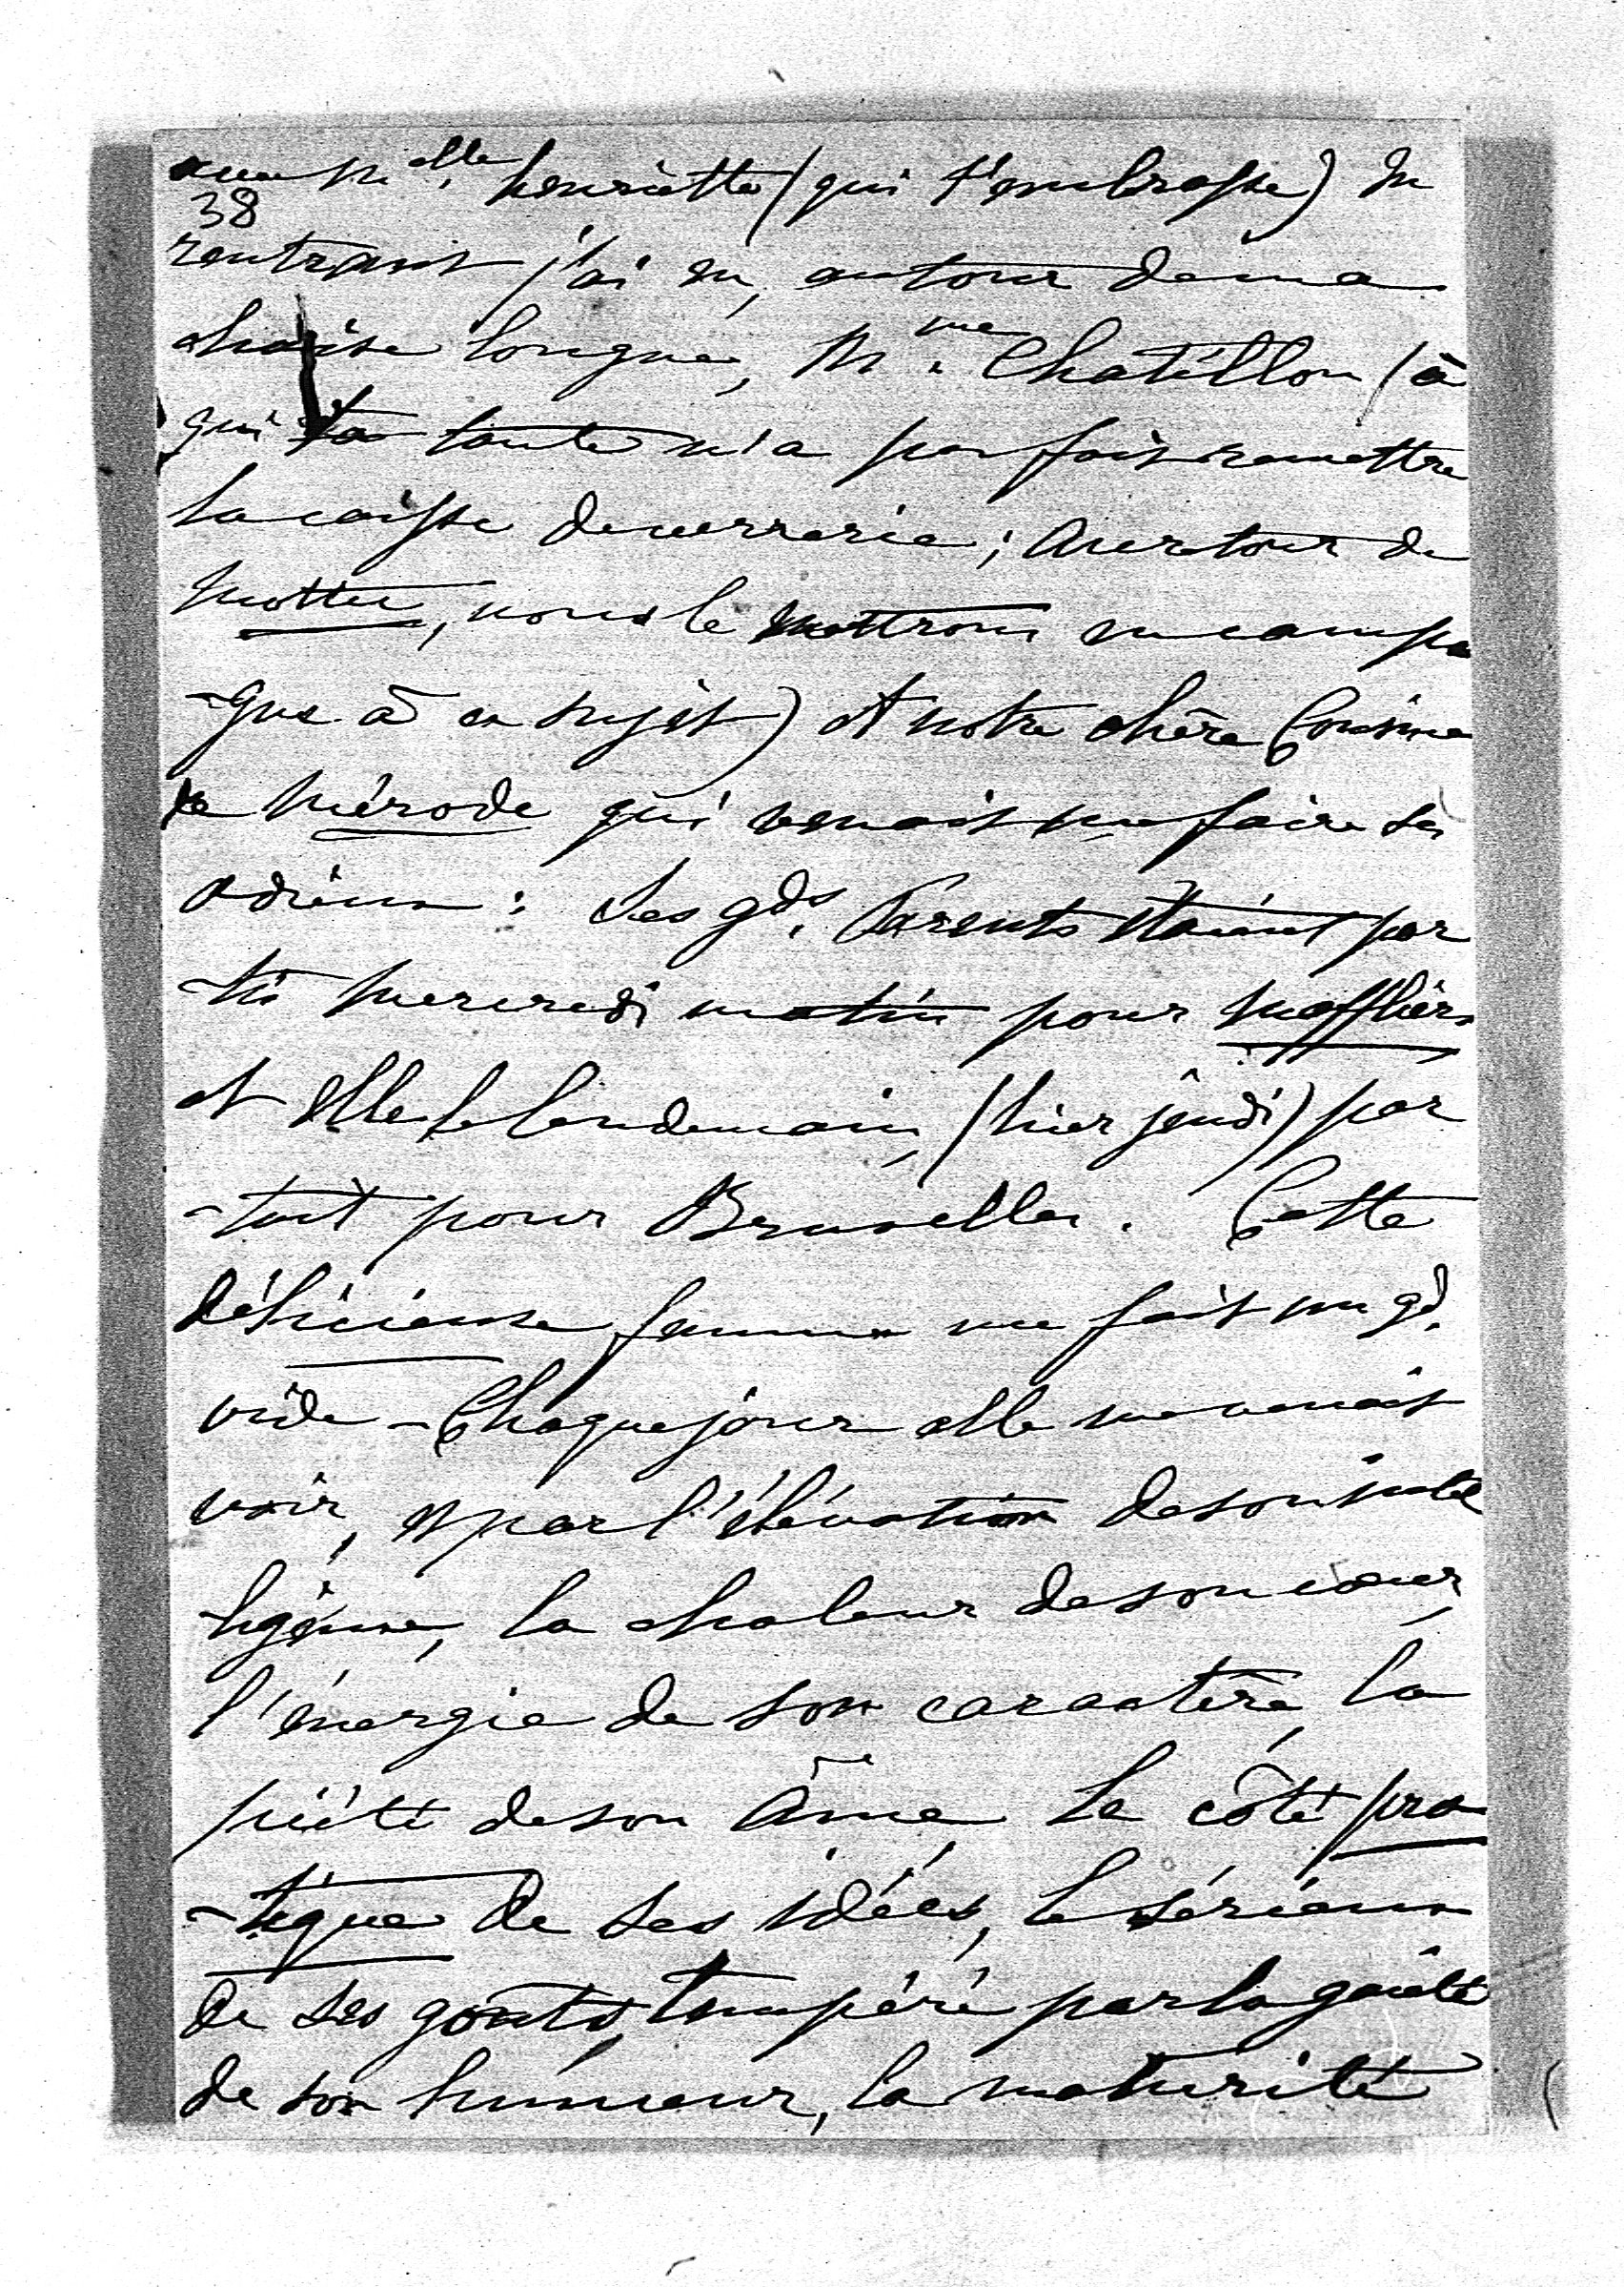 avec M.elle henriette (qui t'embrasse) En
38
rentrant j'ai eu, autour de ma
chaise longue, M.me Chatillon (à
qui ta tante n'a pas fait remettre
la caisse de verrerie; Au retour de
, nous le mettrons en campa
-gne à ce sujet) et notre chère Cousine
de Mérode qui venait me faire ses
adieux : Les gds. Parents étaient par
-tis mercredi matin pour Maffliers
et Elle le lendemain, (hier jeudi) par
-tait pour Bruxelles. Cette
délicieuse femme me fait un gd.
vide - Chaque jour elle me venait
voir, et par l'élévation de son intel
-ligence, la chaleur de son cœur,
l'énergie de son caractère, la
piété de son âme, Le côté pra
-tique de ses idées, le sérieux
de ses goûts, tempéré par la gaieté
de son humeur, la maturité